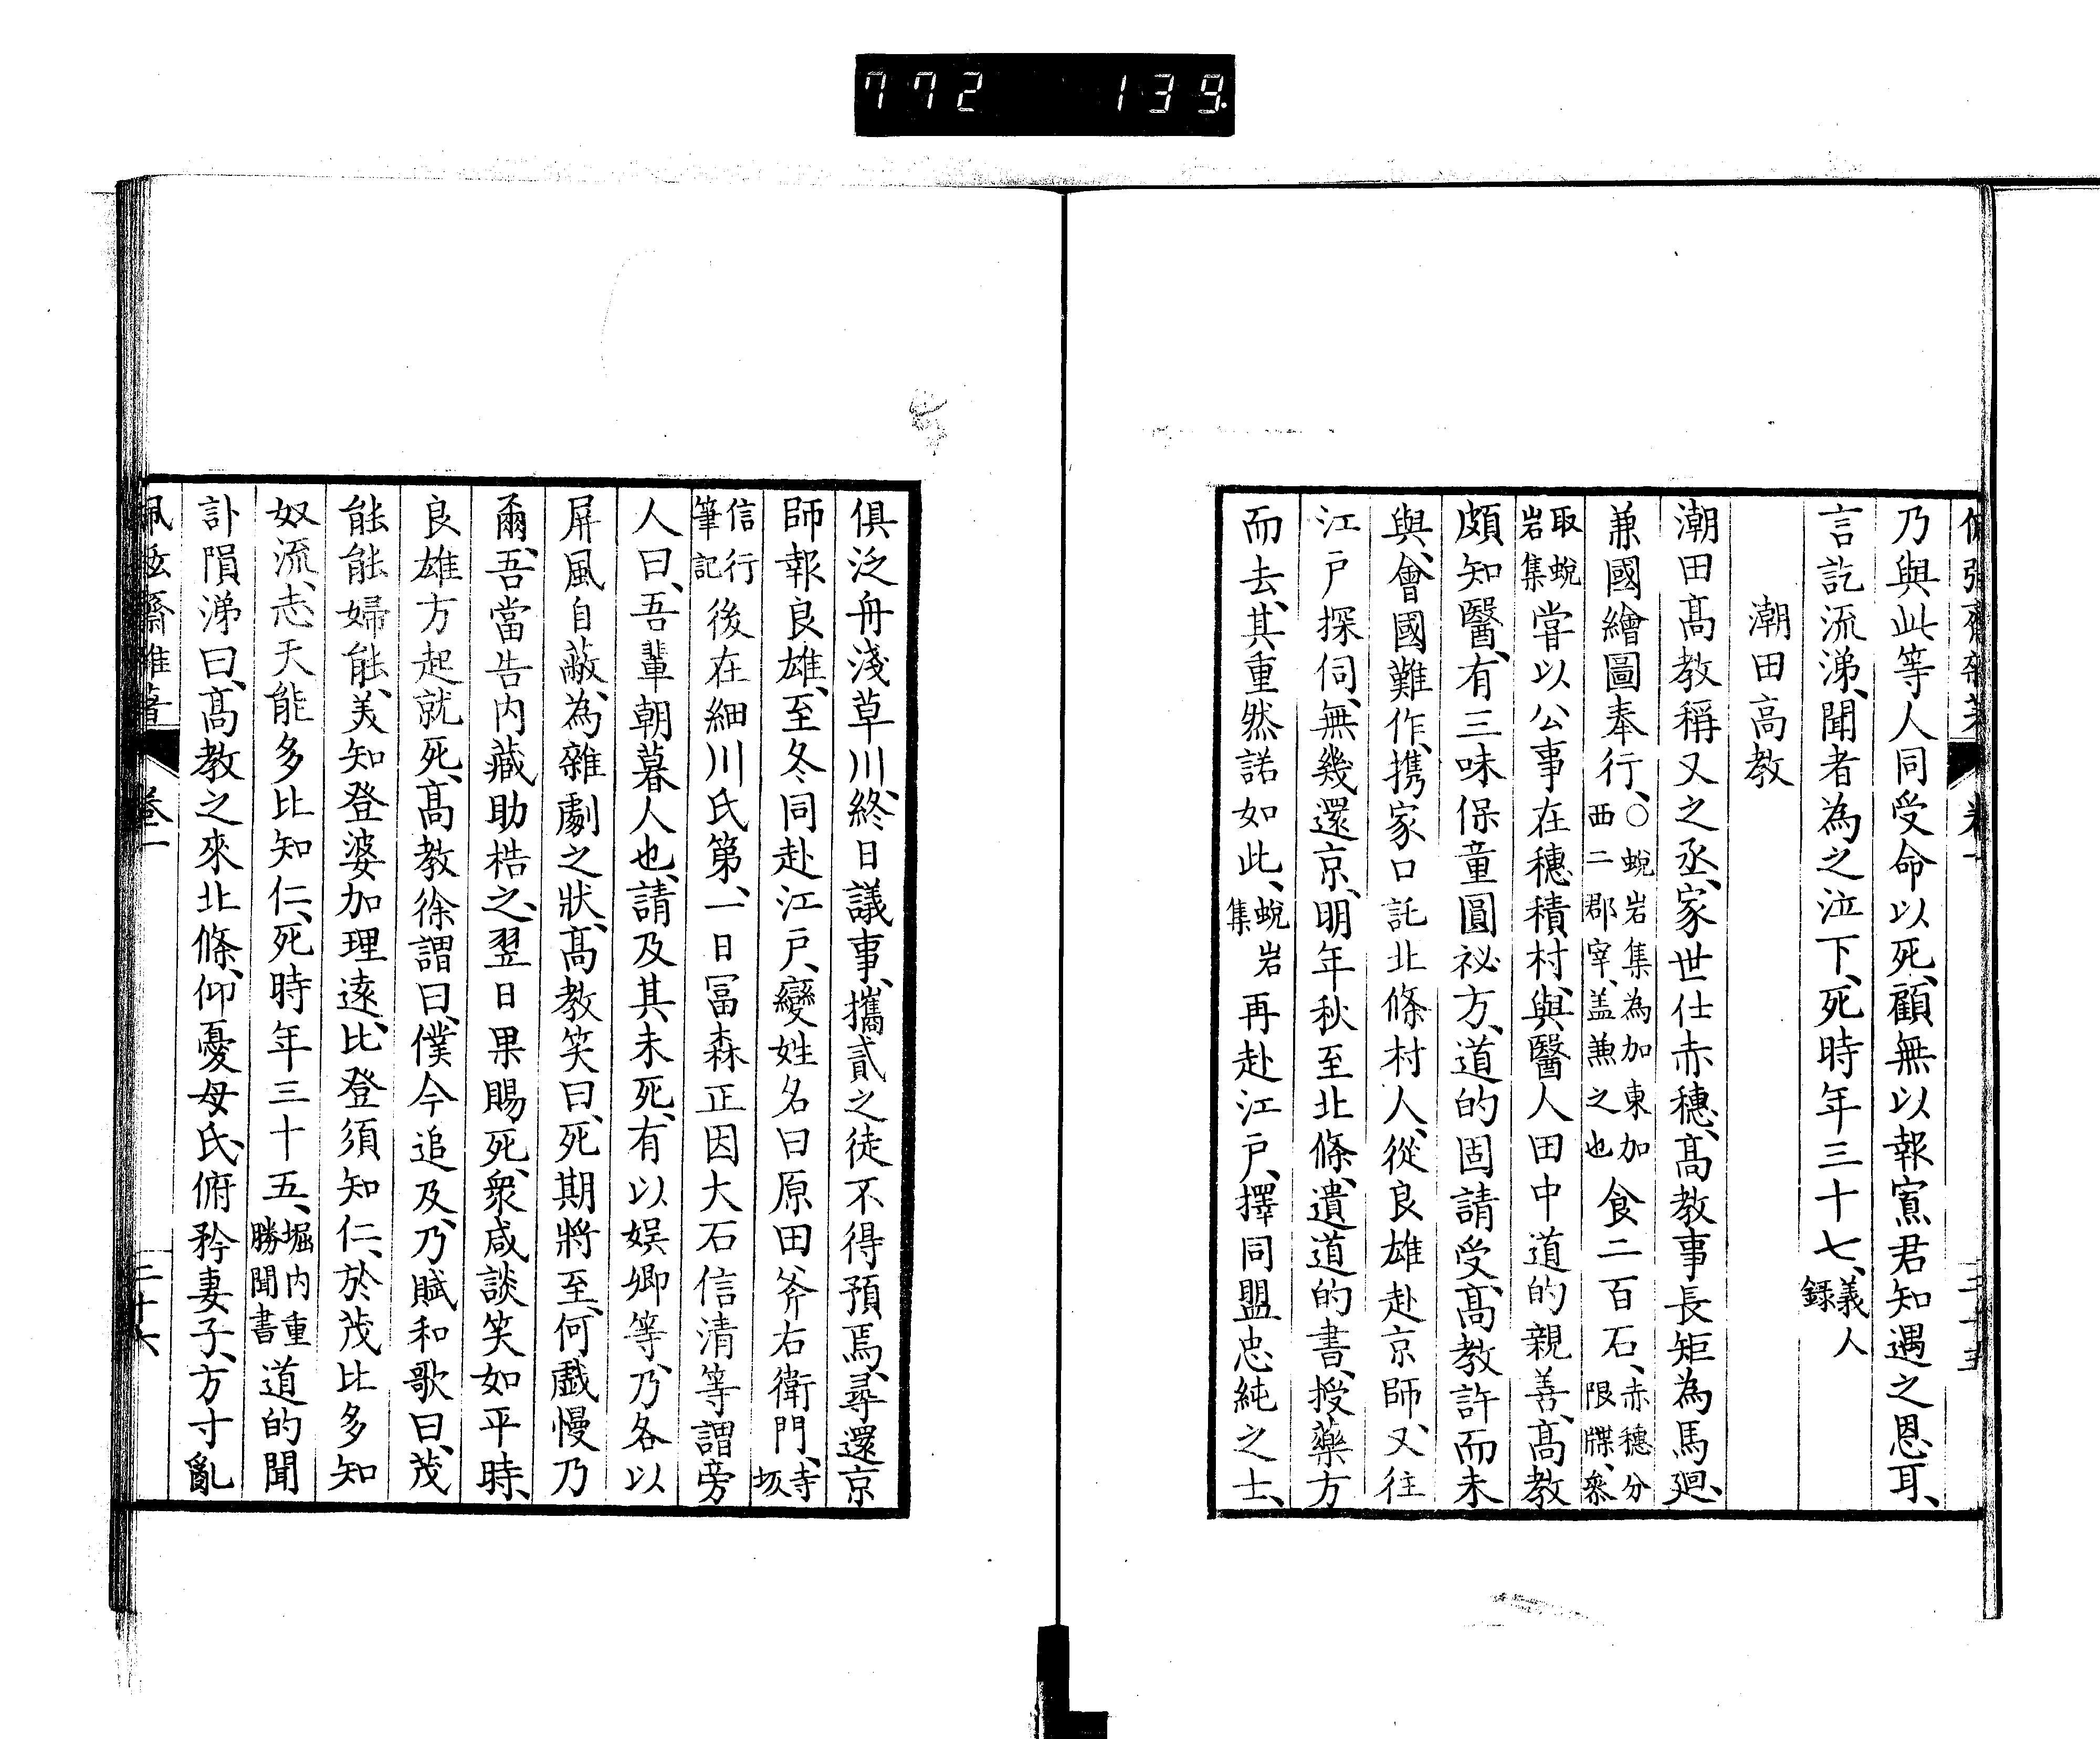 772 139
乃與此等人同受命以死、顧無以報寡君知遇之恩耳、
言訖流涕、聞者為之泣下、死時年三十七、義人錄
潮田高教
潮田高教稱又之丞、家世仕赤穗、高教事長矩為馬廻、
兼國繪圖奉行、○蛻岩集為加東加西二郡宰、盖兼之也食二百石、赤穗分限牒、叅
取蛻岩集嘗以公事在穗積村、與醫人田中道的親善、高教
頗知醫、有三味保童圓祕方、道的固請受、高教許而未
與、會國難作、携家口託北條村人、從良雄赴京師、又往
江戶探伺、無幾還京、明年秋至北條、遺道的書、授藥方
而去、其重然諾如此、蛻岩集再赴江戶、擇同盟忠純之士、
俱泛舟淺草川、終日議事、攜貳之徒不得預焉、尋還京
師報良雄、至冬同赴江戶、變姓名曰原田斧右衛門、寺坂
信行筆記後在細川氏第、一日冨森正因大石信清等謂旁
人曰、吾輩朝暮人也、請及其未死、有以娯卿等、乃各以
屏風自蔽、為雜劇之狀、高教笑曰、死期將至、何戱慢乃
爾、吾當告内藏助梏之、翌日果賜死、衆咸談笑如平時、
良雄方起就死、高教徐謂曰、僕今追及、乃賦和歌曰、茂
能能婦能、美知登婆加理遠、比登須知仁、於茂比多知
奴流、志天能多比知仁、死時年三十五、堀内重勝聞書道的聞
訃隕涕曰、高教之來北條、仰憂母氏、俯矜妻子、方寸亂
卷一
二十六